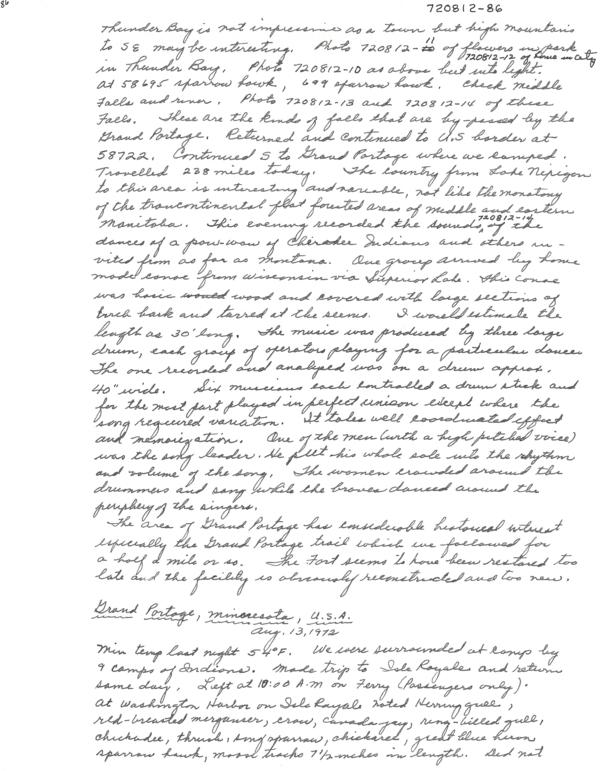 86
720812-86
Thunder Bay is not impressive as a town but high mountains
to SE may be interesting. Photo 720812-11 of flowers in park
720812-12 of house in city
in Thunder Bay. Photo 720812-10 as above but into light.
at 58695 sparrow hawk, 699 sparrow hawk. Check middle
Falls and river. Photo 720812-13 and 720812-14 of these
Falls. These are the kinds of falls that are by-passed by the
Grand Portage. Returned and continued to U.S border at
58722. Continued S to Grand Portage where we camped.
Travelled 228 miles today. The country from Lake Nipigon
to this area is interesting and variable, not like the monotony
of the transcontinental flat forested areas of middle and eastern
Manitoba. This evening recorded the sounds, of the
dances of a pow-wow of Cherokee Indians and others in-
vited from as far as Montana. One group arrived by home
made canoe from Wisconsin via Superior Lake. This Canoe
was basic wood and covered with large sections of
birch bark and tarred at the seems. I would estimate the
length as 30' long. The music was produced by three large
drum, each group of operators playing for a particular dance.
The one recorded and analyzed was on a drum approx.
40" wide. Six musicians each controlled a drum stick and
for the most part played in perfect unison except where the
song required variation. It takes well coordinated effort
and memorization. One of the men (with a high pitched voice)
was the song leader. He put his whole sole into the rhythm
and volume of the song. The women crowded around the
drummers and sang while the braves danced around the
periphery of the singers.
The area of Grand Portage has considerable historical interest
especially the Grand Portage trail which we followed for
a half a mile or so. The Fort seems to have been restored too
late and the facility is obviously reconstructed and too new.
Grand Portage, Minnesota, U.S.A.
Aug. 13, 1972
Min temp last night 54°F. We were surrounded at camp by
9 camps of Indians. Made trip to Isle Royale and return
same day. Left at 10:00 A.M on Ferry (Passengers only).
At Washington Harbor on Isle Royale noted Herring gull,
red-breasted merganser, crow, Canada jay, ring-billed gull,
chickadee, thrush, song sparrow, chickaree, great blue heron
sparrow hawk, moose tracks 7½ inches in length. Did not